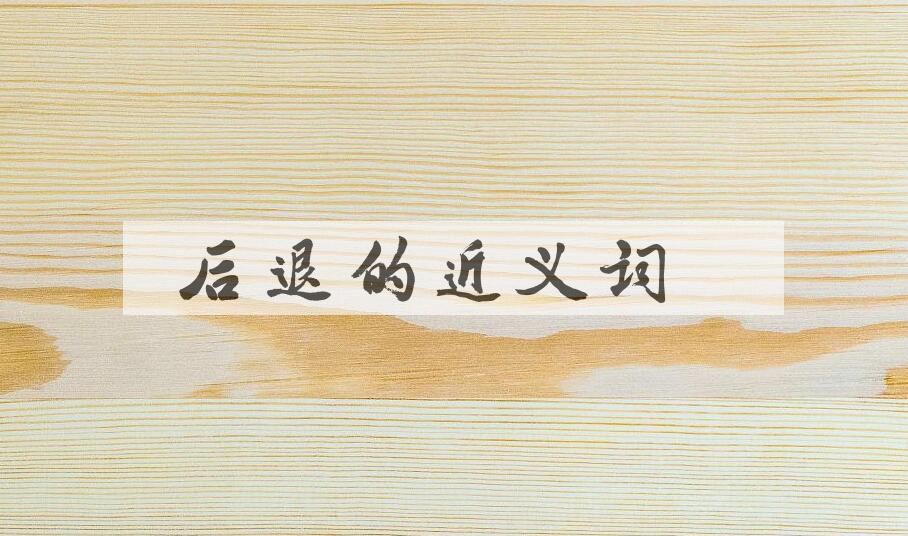 后退的近义词